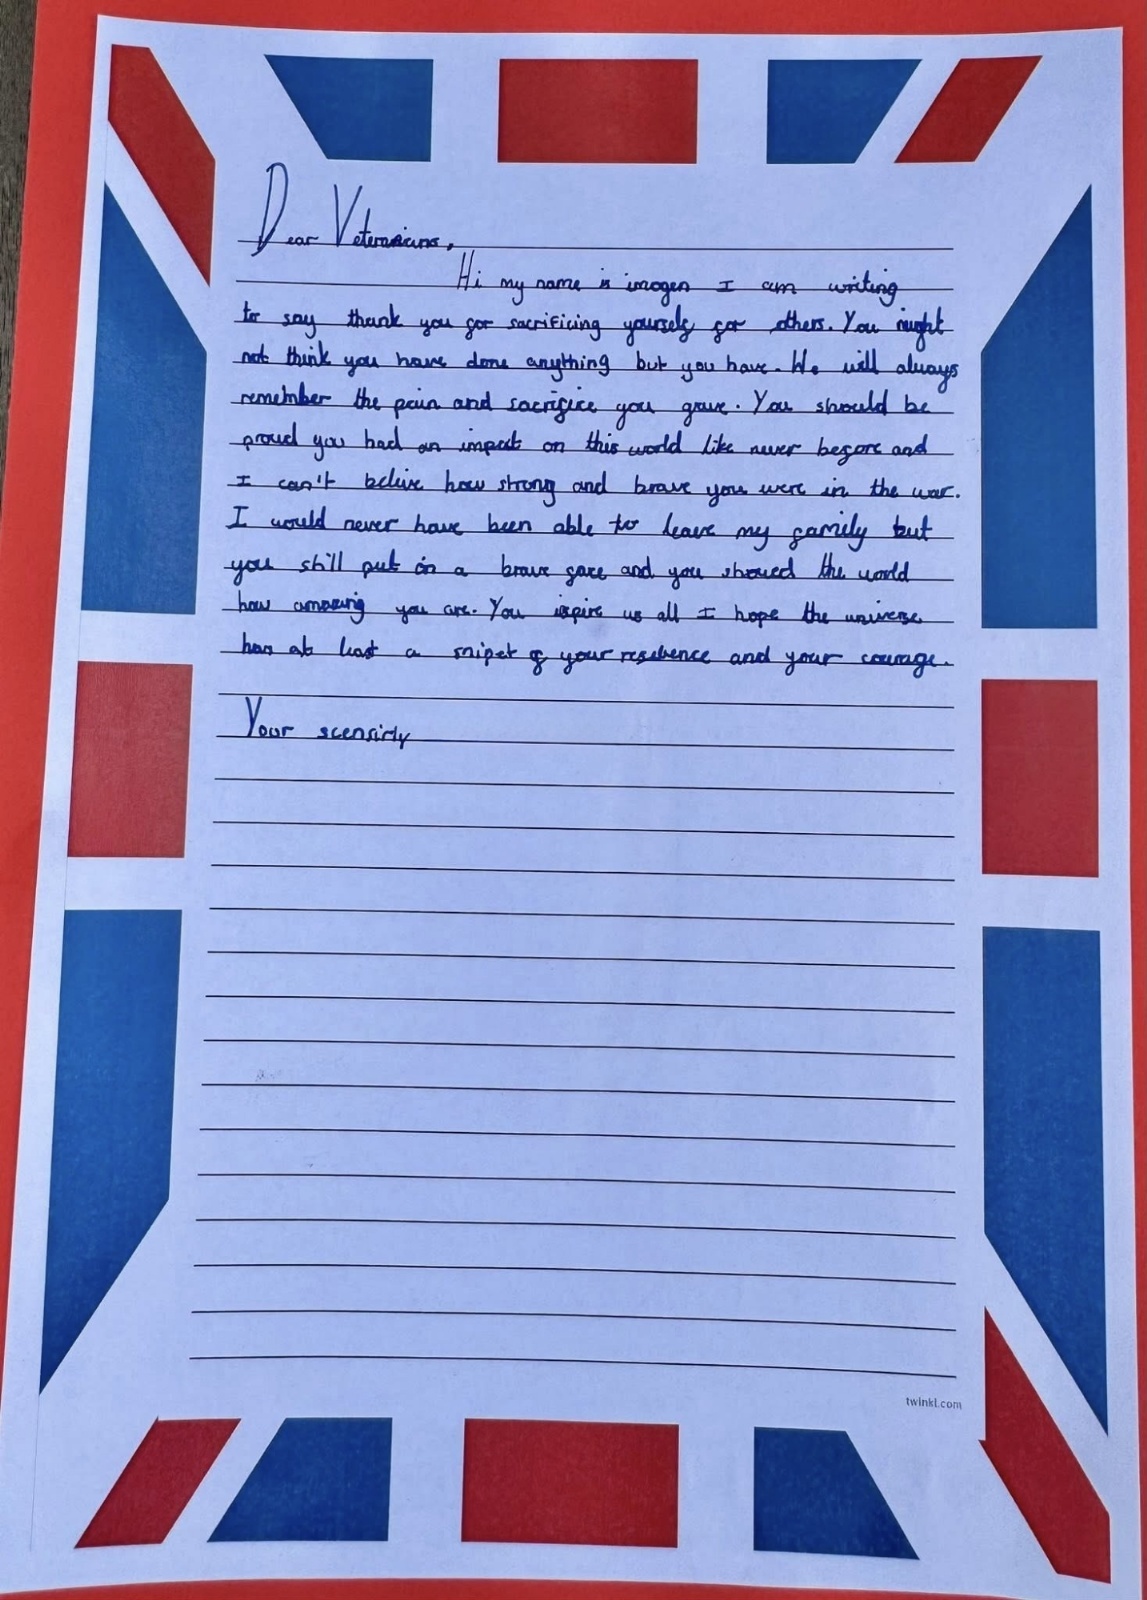 Dear Veteranicans,
Hi my name is imogen I am writing
to say thank you for sacrificing yourself for others. You might
not think you have done anything but you have. We will always
remember the pain and sacrifice you gave. You should be
proud you had an impact on this world like never before and
I can't belive how strong and brave you were in the war.
I would never have been able to leave my family but
you still put on a brave face and you showed the world
how amazing you are. You ispire us all I hope the universe
has at least a snipet of your and your courage.
Your scensirly
twinkl.com